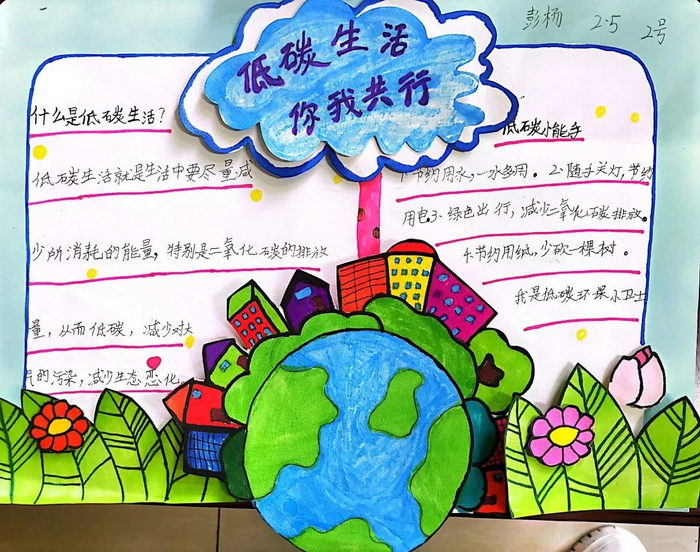 彭杨 2.5 2号
低碳生活
你我共行
什么是低碳生活?
低碳生活就是生活中要尽量减
少所消耗的能量,特别是二氧化碳的排放
量,从而低碳,减少对大
气的污染,减少生态恶化
低碳小能手
1.节约用水,一水多用。2.随手关灯,节约
用电3.绿色出行,减少二氧化碳排放。
4.节约用纸,少砍一棵树。
我是低碳环保小卫士